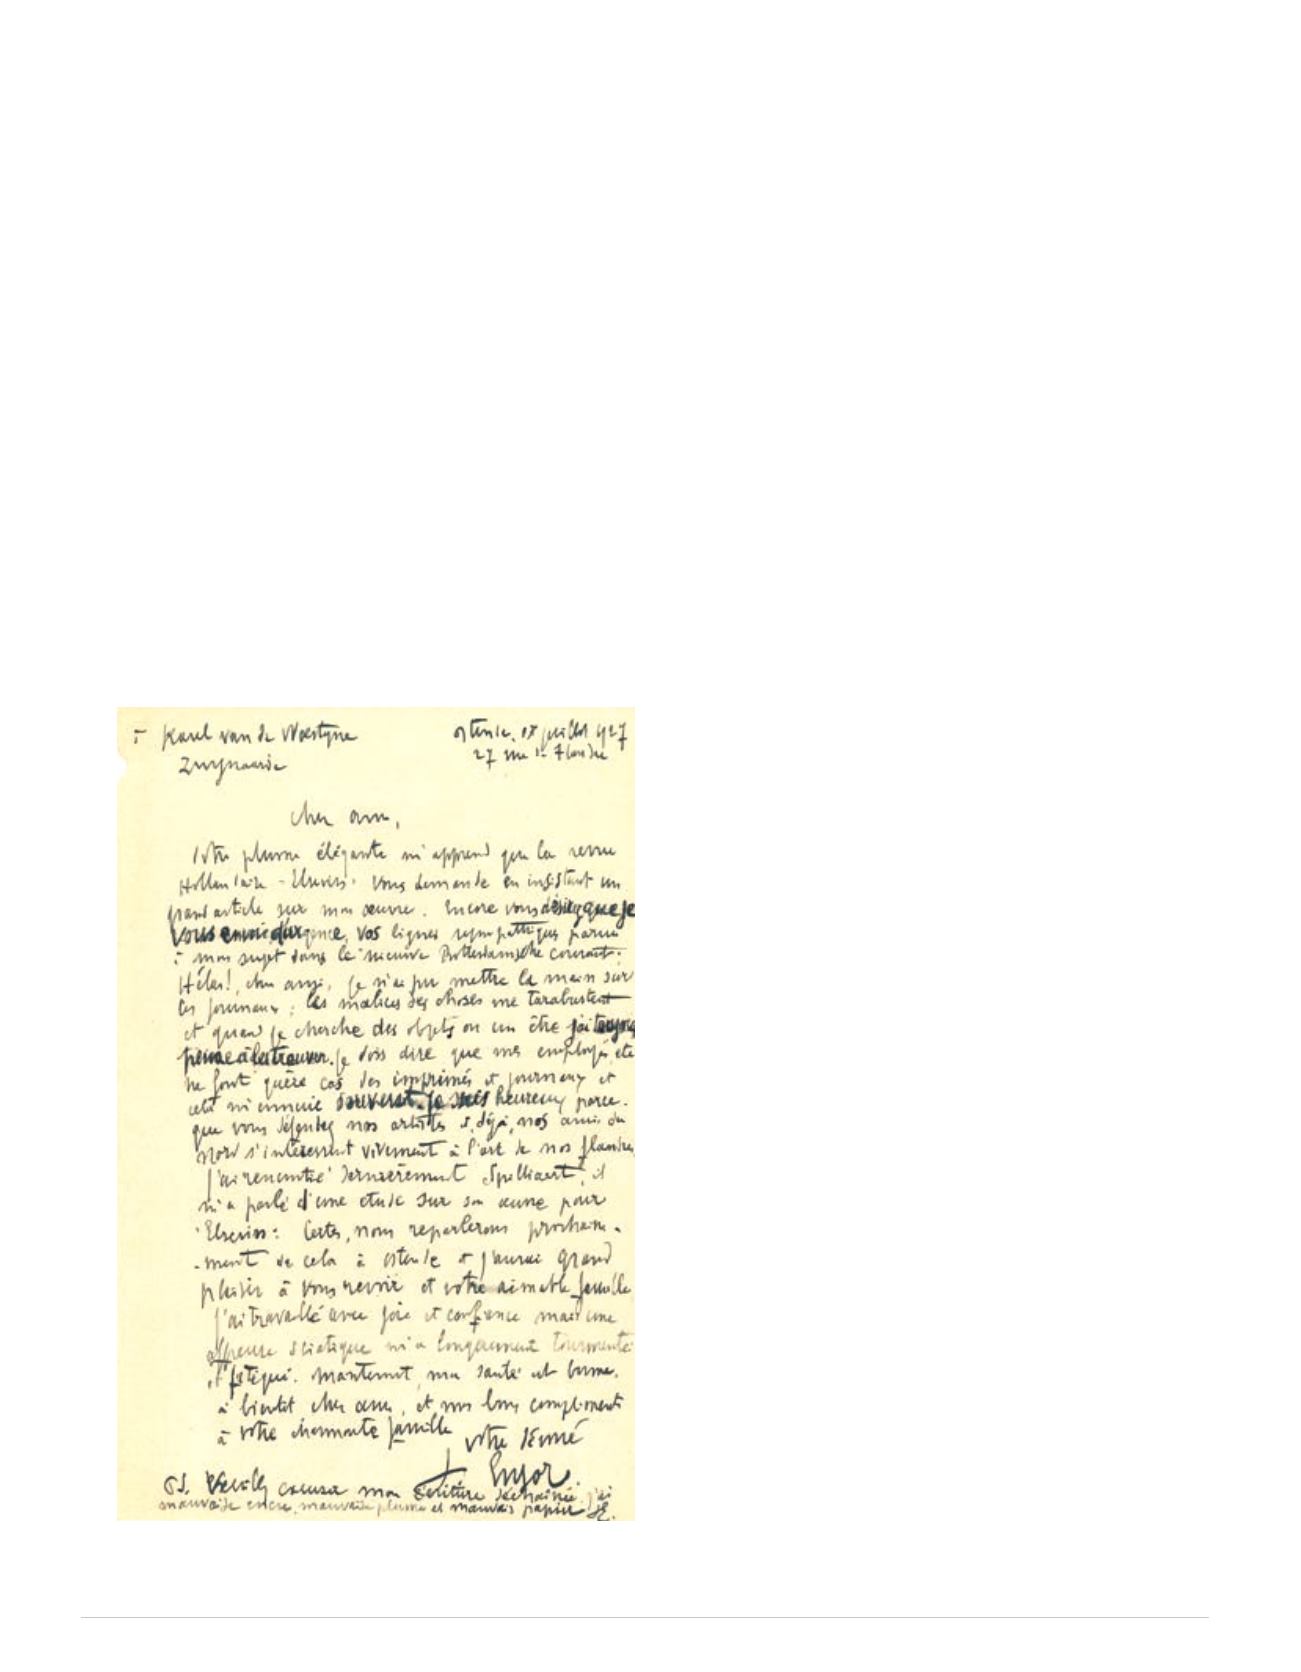 à Karel van de Woestyne
Ostende. juillet 1927
Zwynaarde
27 rue de Flandre
Cher ami,
Votre plume élégante m'apprend que la revue
Hollandaise "Elsevier" vous demande en insistant un
grand article sur mon œuvre. Encore vous désirez que je
vous envoie d'urgence, vos lignes sympathiques parues
à mon sujet dans le "nieuwe Rotterdamsche courant".
Hélas!, cher ami, je n'ai pu mettre la main sur
les journaux; les malices des choses me tarabustent
et quand je cherche des objets ou un être j'ai toujours
peine à les trouver. Je dois dire que mes employés etc
ne font guère cas des imprimés et journaux et
cela m'ennuie souvent. Je suis heureux parce-
que vous défendez nos artistes et, déjà, nos amis du
Nord s'intéressent vivement à l'art de nos Flandres
J'ai rencontré dernièrement Spilliaert, il
m'a parlé d'une étude sur son œuvre pour
"Elsevier": Certes, nous reparlerons prochaine-
-ment de cela à Ostende et j'aurai grand
plaisir à vous revoir et votre aimable famille
J'ai travaillé avec joie et confiance mais une
affreuse sciatique m'a longuement tourmenté
et fatigué. Maintenant, ma santé est bonne.
à bientôt cher ami, et mes bons compliments
à votre charmante famille
votre dévoué
J Ensor
PS. Veuillez excuser mon écriture déchainée. j'ai
mauvaise encre, mauvaise plume et mauvais papier JE.